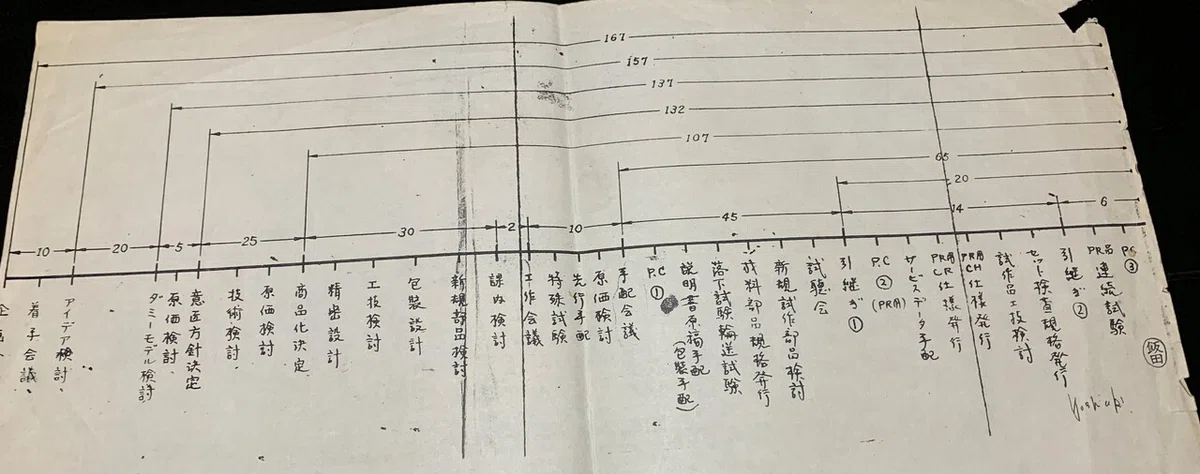 167
157
137
132
107
65
20
10
20
5
25
30
2
10
45
14
6
着手会議、
アイデア検討、
ダミーモデル検討、
原価検討、
意匠方針決定
技術検討、
原価検討
商品化決定
精密設計
工技検討
包装設計
新規部品検討
課内検討
工作会議
特殊試験
先行手配
原価検討
手配会議
P.C ①
説明書原稿手配 (包装手配)
落下試験輸送試験
材料部品規格発行
新規試作部品検討
試聴会
引継ぎ①
P.C ② (PRA)
サービスデータ手配
PR用CL仕様発行
PR用CH仕様発行
試作品工技検討
セット検査規格発行
引継ぎ②
PR品連続試験
P.C ③
飯田
Yoshuki.